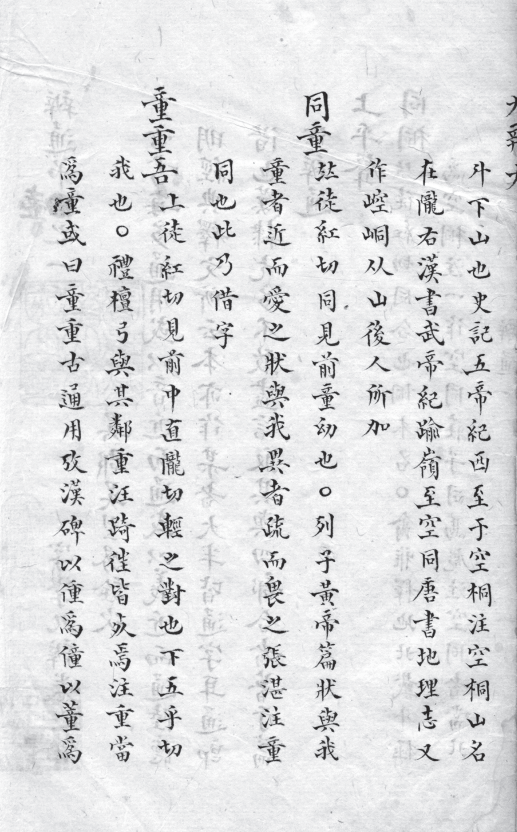 斗下山也史記五帝紀西至于空桐注空桐山名
在隴右漢書武帝紀踰嶺至空同唐書地理志又
作崆峒从山後人所加
同童
竝徒紅切同見前童幼也○列子黃帝篇狀與我
童者近而愛之狀與我異者疏而畏之張湛注童
同也此乃借字
童重吾
上徒紅切見前中直隴切輕之對也下五乎切
我也○禮檀弓與其鄰重汪踦徃皆死焉注重當
爲童或曰童重古通用攷漢碑以僮爲僮以董爲